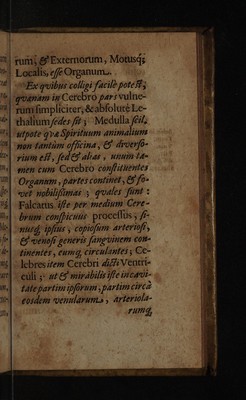 rum, & Externorum, Motusq́;
Localis, esse Organum.
Ex quibus colligi facilè potest,
quænam in Cerebro pars vulne-
rum simpliciter, & absolutè Le-
thalium sedes sit; Medulla scil.
utpote quæ Spirituum animalium
non tantùm officina, & diverso-
rium est, sed & alias, unum ta-
men cum Cerebro constituentes
Organum, partes continet, & fo-
vet nobilissimas; quales sunt:
Falcatus iste per medium Cere-
brum conspicuus processus, si-
nusq́ ipsius; copiosum arteriosi,
& venosi generis sanguinem con-
tinentes, eumq́ circulantes; Ce-
lebres item Cerebri dicti Ventri-
culi; ut & mirabilis iste in cavi-
tate partim ipsorum, partim circà
eosdem venularum, arteriola-
rumq́